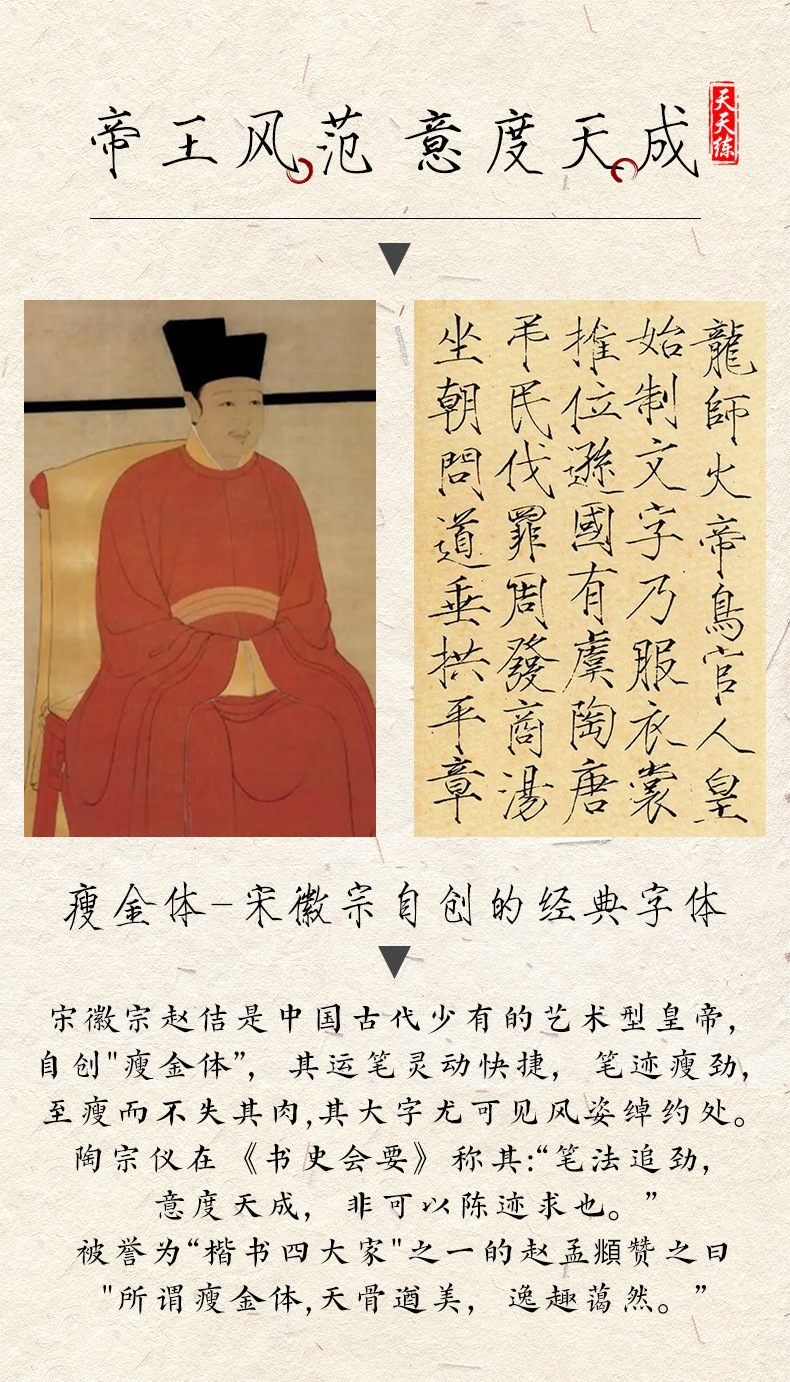 帝王风范 意度天成
天天练
龍師火帝鳥官人皇
始制文字乃服衣裳
推位遜國有虞陶唐
弔民伐罪周發商湯
坐朝問道垂拱平章
瘦金体-宋徽宗自创的经典字体
宋徽宗赵佶是中国古代少有的艺术型皇帝,
自创"瘦金体”，其运笔灵动快捷，笔迹瘦劲,
至瘦而不失其肉,其大字尤可见风姿绰约处。
陶宗仪在《书史会要》称其:“笔法追劲,
意度天成，非可以陈迹求也。”
被誉为“楷书四大家"之一的赵孟頫赞之曰
"所谓瘦金体,天骨遒美，逸趣蔼然。”